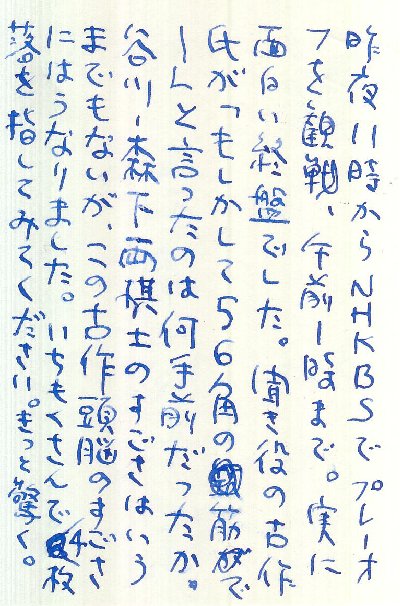 昨夜11時からNHKBSでプレーオ
フを観戦、午前1時まで。実に
面白い終盤でした。聞き役の古作
氏が「もしかして56角の筋がで
ーしと言ったのは何手前だったか。
谷川ー森下両棋士のすごさはいう
までもないが、この古作頭脳のすごさ
にはうなりました。いちもくさんで4枚
落を指してみてください。きっと驚く。